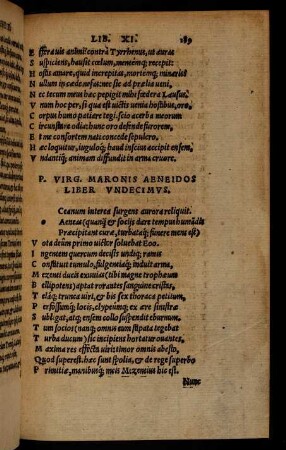 LIB. XI. 189
E fferaui animi? contrà Tyrrhenus, ut auras
S uspiciens, hausit cœlum, mentémq; recepit:
H ostis amare, quid increpitas, mortémq; minaris?
N ullum in cæde nefas: nec sic ad prælia ueni,
N ec tecum meus hæc pepigit mihi fœdera Lausus.
V num hoc per, si qua est uictis uenia hostibus, oro,
C orpus humo patiare tegi. scio acerba meorum
C ircunstare odia: hunc oro defende furorem,
E t me consortem nati concede sepulcro.
H æc loquitur, iuguloq; haud inscius accipit ensem,
V ndantiq; animam diffundit in arma cruore.
P. VIRG. MARONIS AENEIDOS
LIBER VNDECIMVS.
Ceanum interea surgens aurora reliquit.
Aeneas (quanq̃ & socijs dare tempus humãdis
Præcipitant curæ, turbataq; funere mens est)
V ota deûm primo uictor soluebat Eoo.
I ngentem quercum decisis undiq; ramis
C onstituit tumulo, fulgentiaq; induit arma,
M ezenti ducis exuuias (tibi magne trophæum
B ellipotens) aptat rorantes sanguine cristas,
T elaq; trunca uiri, & bis sex thoraca petitum,
P erfossumq; locis, clypeumq; ex ære sinistræ
S ubligat, atq; ensem collo suspendit eburnum.
T um socios (nanq; omnis eum stipata tegebat
T urba ducum) sic incipiens hortatur ouantes,
M axima res effecta uiri: timor omnis abesto,
Q uod superest. hæc sunt spolia, & de rege superbo
P rimitiæ, manibusq; meis Mezentius hic est.
Nunc